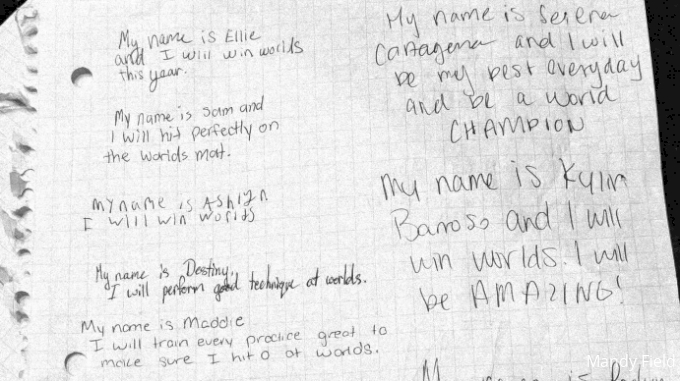 My name is Ellie
and I will win worlds
this year.
My name is Sam and
I will hit perfectly on
the worlds mat.
My name is Ashlyn
I will win worlds
My name is Destiny.
I will perform good technique at worlds.
My name is Maddie
I will train every practice great to
make sure I hit 0 at worlds.
My name is Serena
Cartagena and I will
be my best everyday
and be a world
CHAMPION
My name is Kylin
Barroso and I will
win worlds. I will
be AMAZING!
Mandy Field